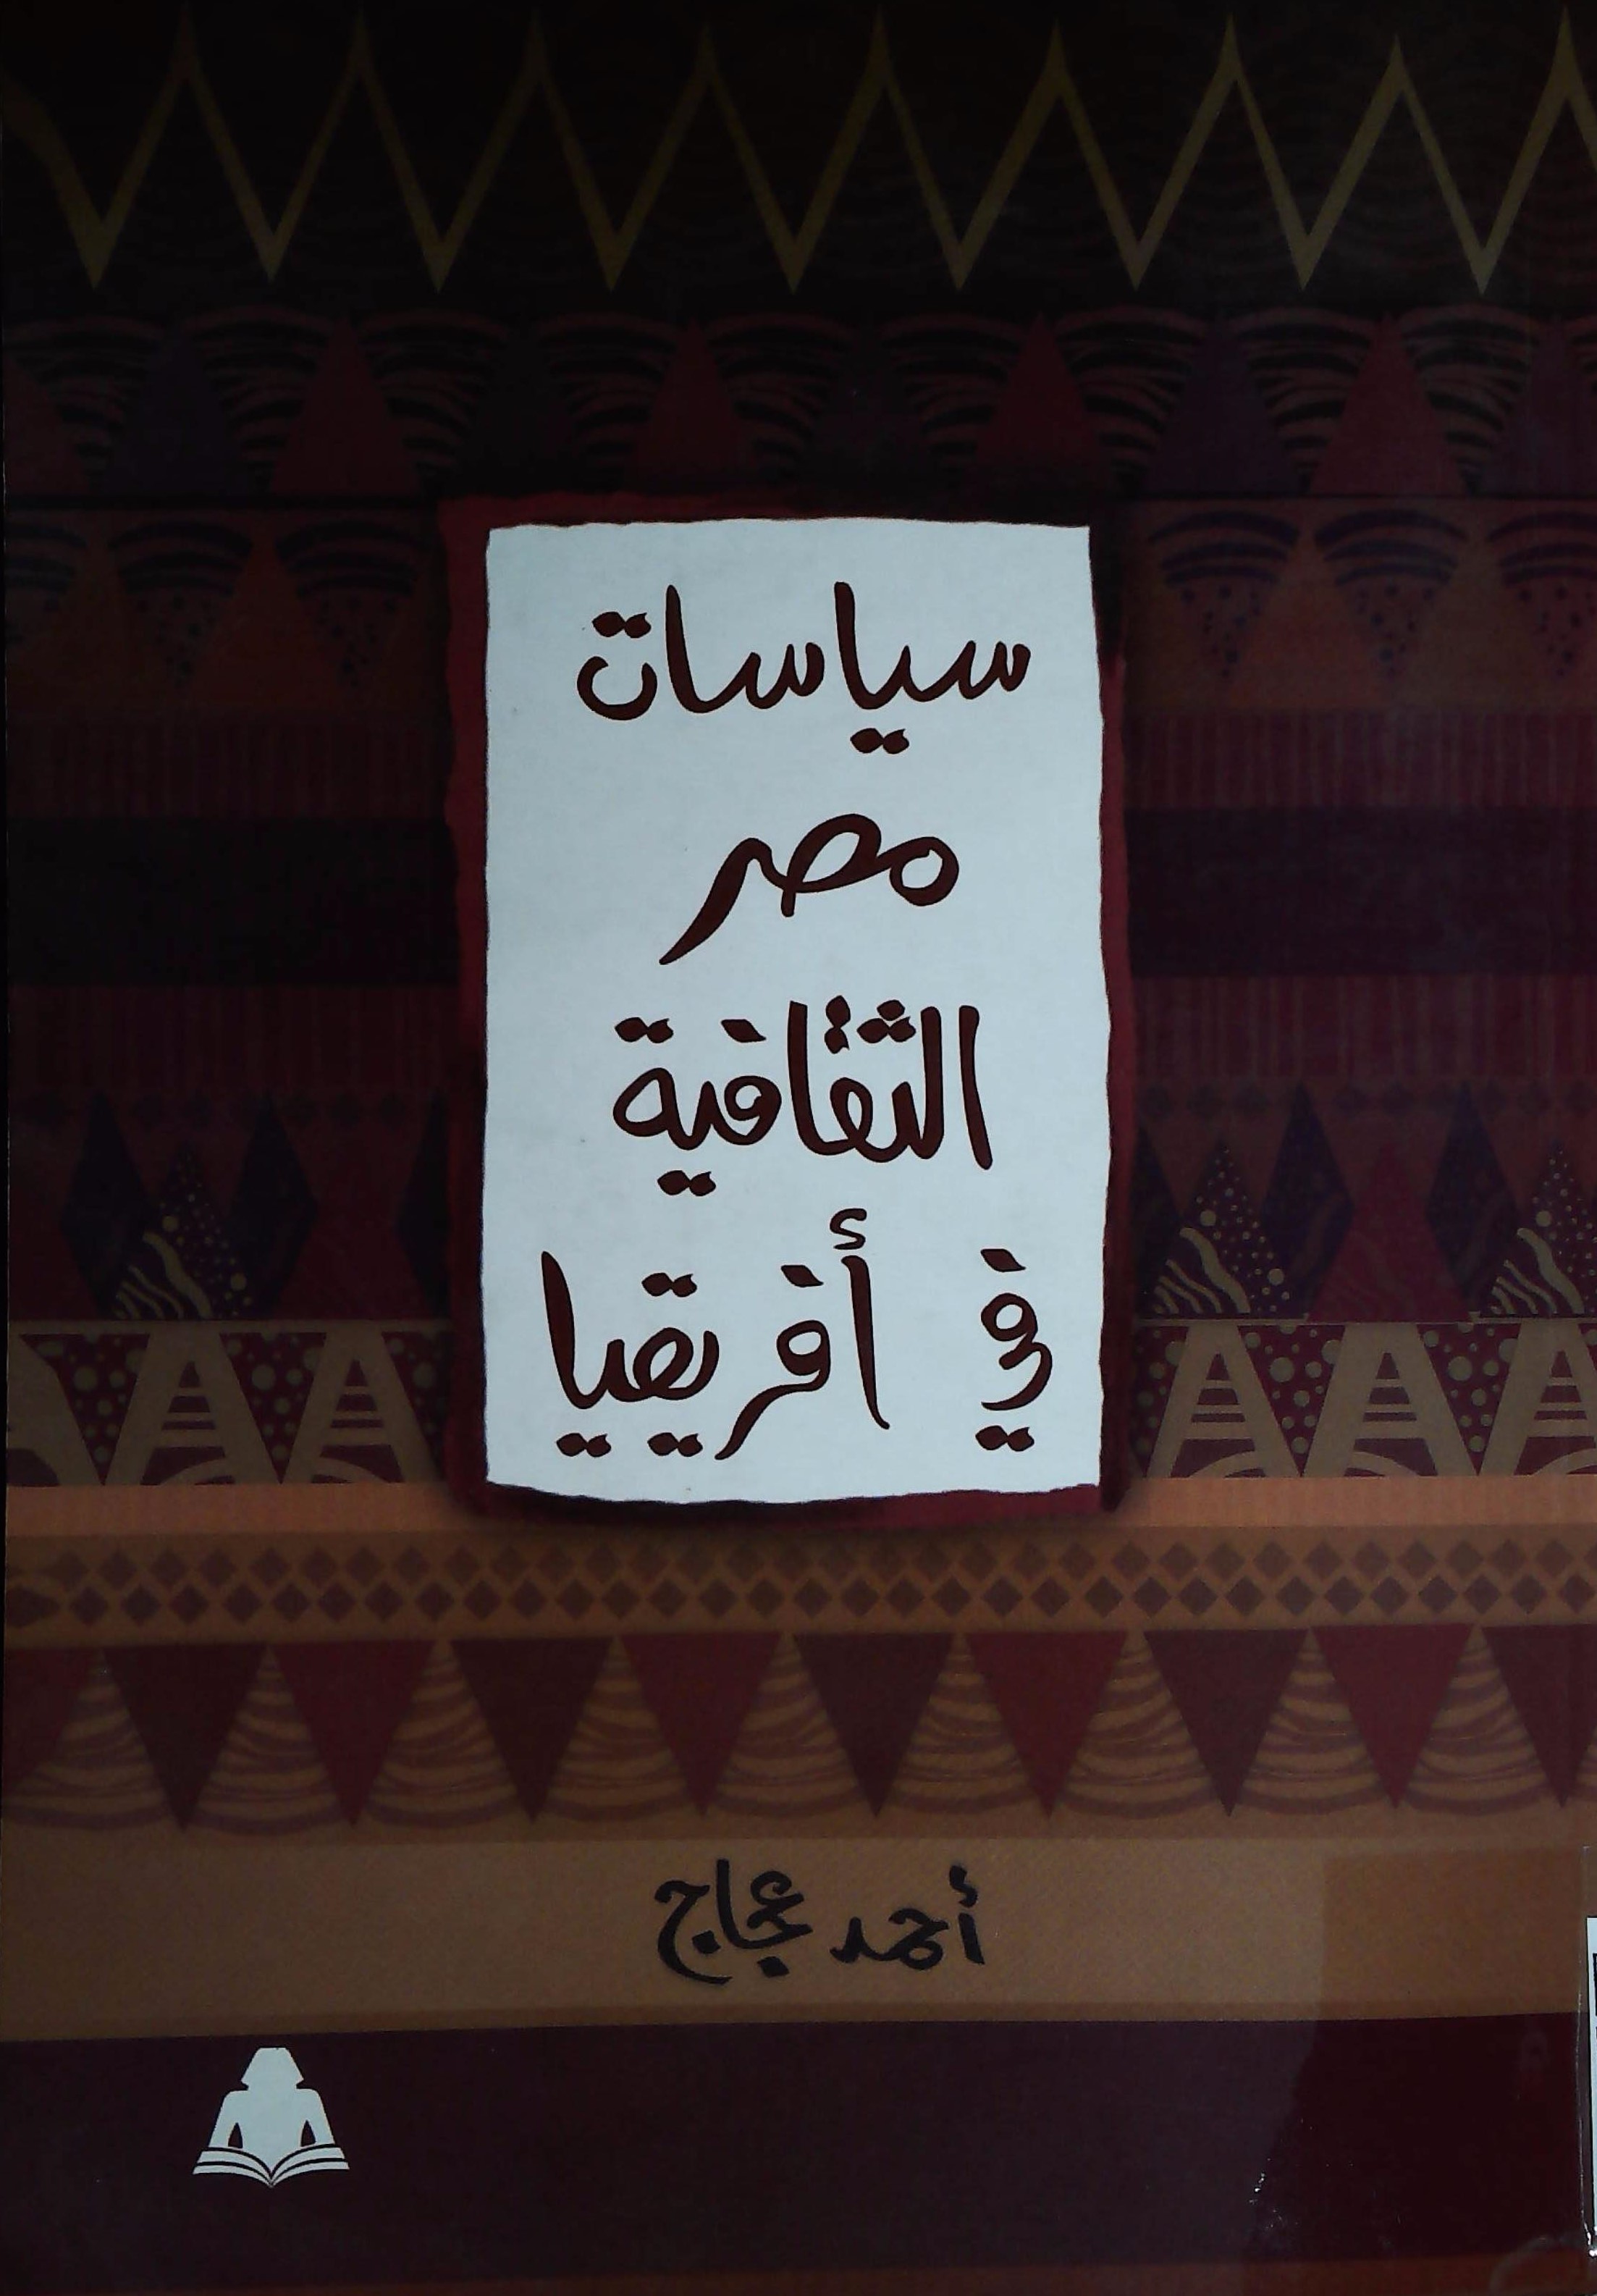 سياسات
مصر
الثقافية
في أفريقيا
أحمد عجاج